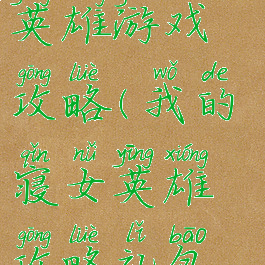 英雄游戏
gōng lüè wǒ de
攻略(我的
qǐn nǚ yīng xióng
寝女英雄
gōng lüè lǐ bāo
攻略礼包